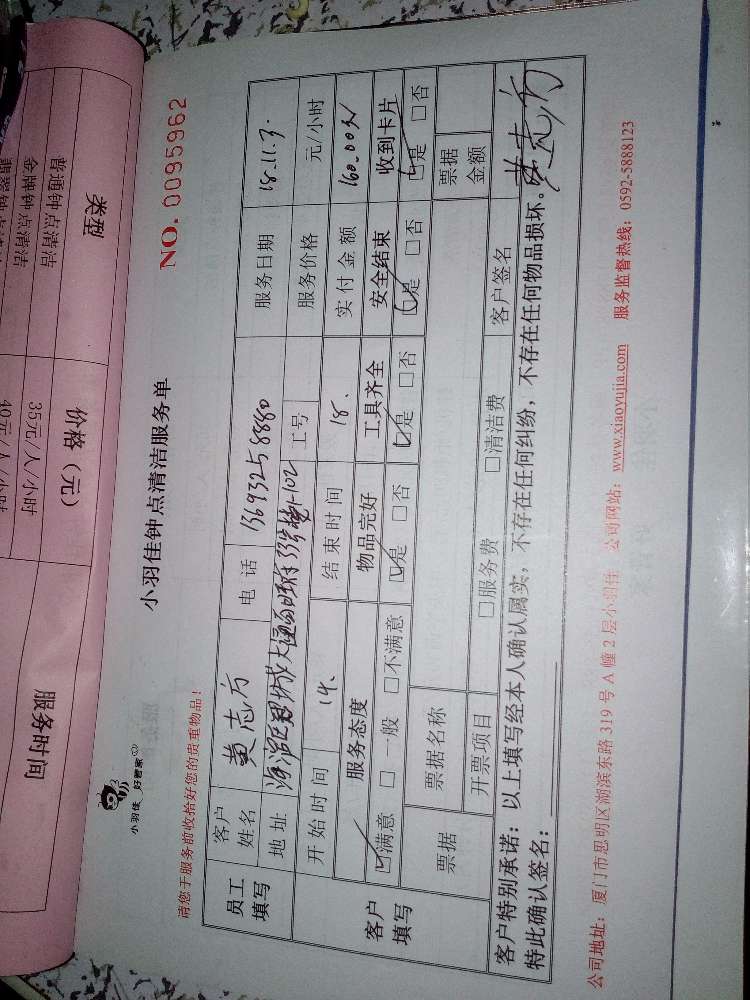 类型
价格（元）
服务时间
普通钟点清洁
35元/人/小时
金牌钟点清洁
40元/人/小时
小羽佳 好管家
小羽佳钟点清洁服务单
请您于服务前收拾好您的贵重物品！
NO. 0095962
员工填写
客户姓名 黄志方 电话 13693258880 服务日期 18.11.3.
地址 工号 服务价格 元/小时
开始时间 14. 结束时间 18. 实付金额 160.00元
客户填写
服务态度 物品完好 工具齐全 安全结束 收到卡片
☑满意 □一般 □不满意 ☑是 □否 ☑是 □否 ☑是 □否 ☑是 □否
票据 票据名称 票据金额
开票项目 □服务费 □清洁费 客户签名 黄志方
客户特别承诺：以上填写经本人确认属实，不存在任何纠纷，不存在任何物品损坏。
特此确认签名：
公司地址：厦门市思明区湖滨东路319号A幢2层小羽佳 公司网站：www.xiaoyujia.com 服务监督热线：0592-5888123